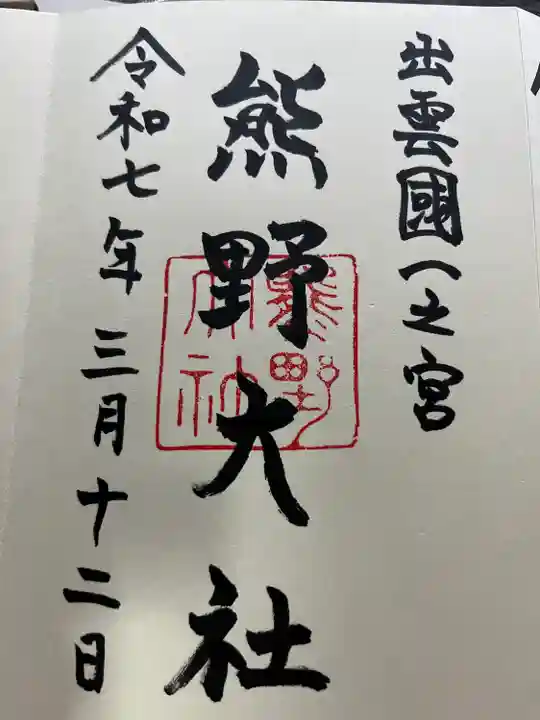 出雲國一之宮
熊野大社
熊野
大社
令和七年三月十二日